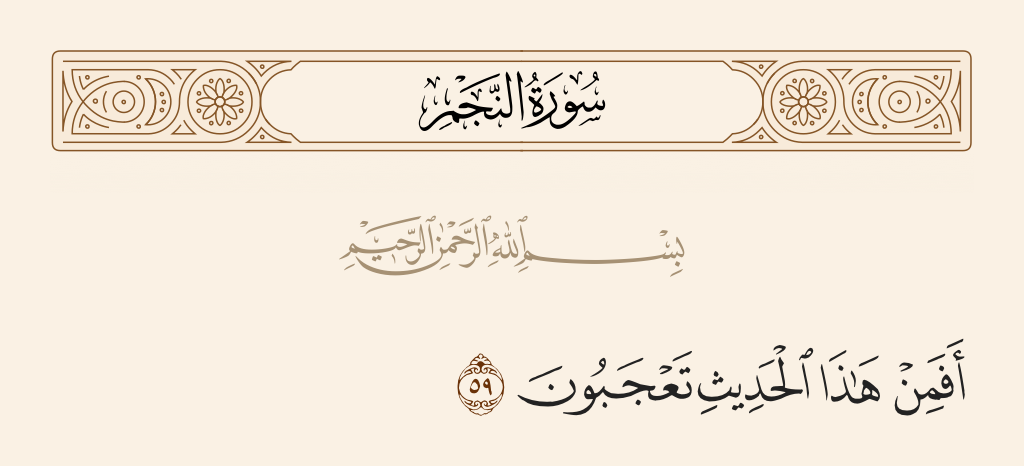 سُورَةُ النَّجْمِ
بِسْمِ ٱللَّهِ ٱلرَّحْمَٰنِ ٱلرَّحِيمِ
أَفَمِنْ هَٰذَا ٱلْحَدِيثِ تَعْجَبُونَ ٥٩